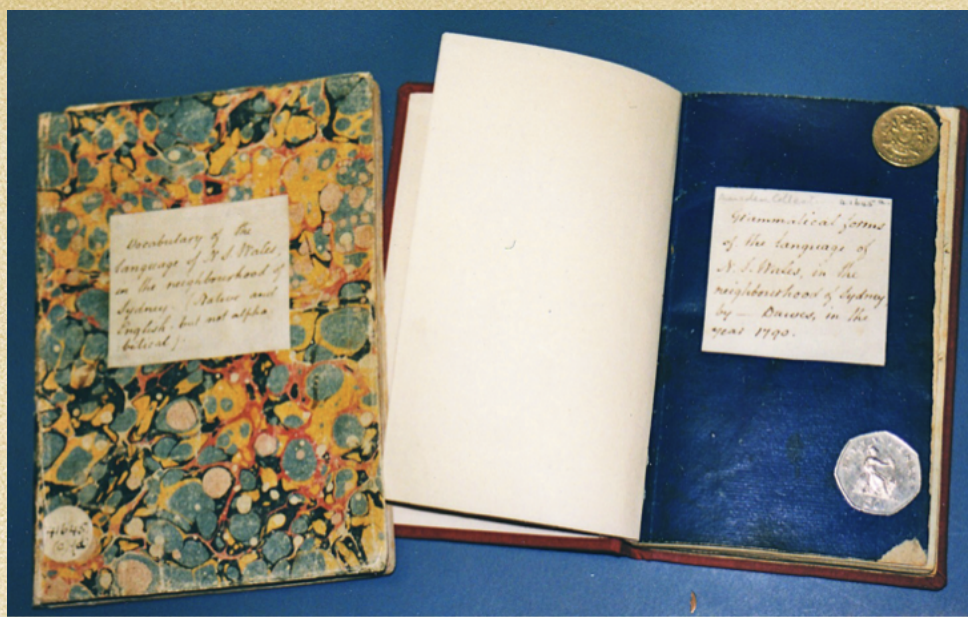 Vocabulary of the
language of N. S. Wales,
in the neighbourhood of
Sydney. (Native and
English, but not alpha-
betical).
41645
Marsden Collect
Grammatical forms
of the language of
N. S. Wales, in the
neighbourhood of Sydney
by — Dawes, in the
year 1790.